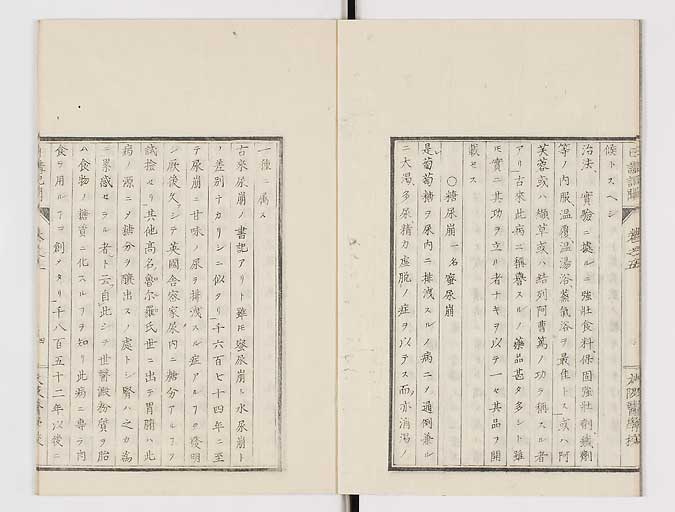 候トスヘシ
治法、實驗ニ據ルニ強壯食料保固強壯劑鐵劑
等ノ内服温覆温湯浴蒸氣浴ヲ最佳トス或ハ阿
芙蓉或ハ纈草或ハ結列阿曹篤ノ功ヲ稱スル者
アリ古來此病ニ稱譽スルノ藥品甚タ多シト雖
モ實ニ其功ヲ立ル者ナキヲ以テ一セ其品ヲ開
載セス
○糖尿崩一名蜜尿崩
是葡萄糖ヲ尿内ニ排洩スルノ病ニノ通例兼ル
ニ大渇、多尿精力虚脱ノ症ヲ以テス而亦消渇ノ
一種ニ屬ス
古來尿崩ノ書記アリト雖モ蜜尿崩ト水尿崩ト
ノ差別ナカリシニ似タリ千六百七十四年ニ至
テ尿崩ニ甘味ノ尿ヲ排洩スル症アルヿヲ發明
シ厥後久シテ英國舎密家尿内ニ糖分アルヿヲ
試撿セリ其他高名魯尔羅氏世ニ出テ胃腑ハ此
病ノ源ニノ糖分ヲ釀出スノ處トシ腎ハ之カ爲
ニ累感セラル者ト云自此シテ世醫澱粉質ヲ胎
ハ食物ノ糖質ニ化スルヿヲ知リ此病ニ專ラ肉
食ヲ用ルヿヲ創メタリ千八百五十二年以後ニ